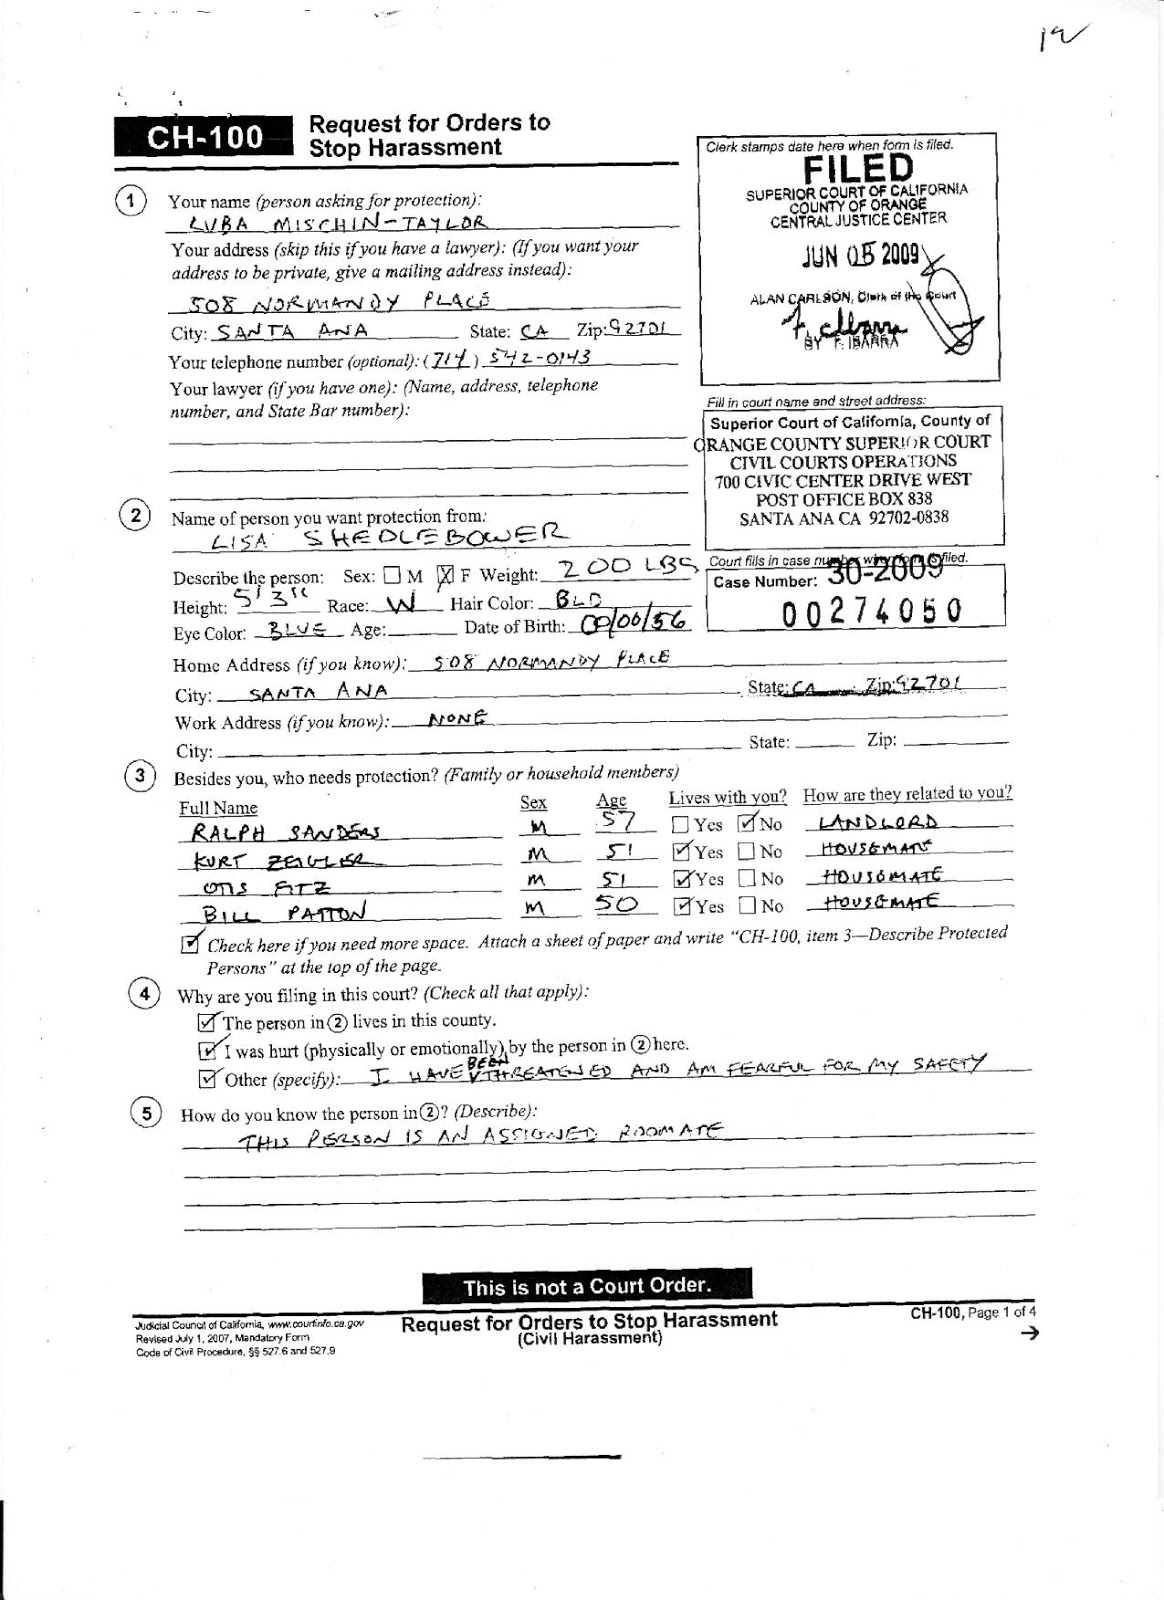 CH-100
Request for Orders to
Stop Harassment
Clerk stamps date here when form is filed.
FILED
SUPERIOR COURT OF CALIFORNIA
COUNTY OF ORANGE
CENTRAL JUSTICE CENTER
JUN 05 2009
ALAN CARLSON, Clerk of the Court
BY F. IBARRA
1 Your name (person asking for protection):
LUBA MISCHIN-TAYLOR
Your address (skip this if you have a lawyer): (If you want your
address to be private, give a mailing address instead):
508 NORMANDY PLACE
City: SANTA ANA State: CA Zip: 92701
Your telephone number (optional): (714) 542-0143
Your lawyer (if you have one): (Name, address, telephone
number, and State Bar number):
Fill in court name and street address:
Superior Court of California, County of
ORANGE COUNTY SUPERIOR COURT
CIVIL COURTS OPERATIONS
700 CIVIC CENTER DRIVE WEST
POST OFFICE BOX 838
SANTA ANA CA 92702-0838
Court fills in case number when form is filed.
Case Number: 30-2009
00274050
2 Name of person you want protection from:
LISA SHEDLEBOWER
Describe the person: Sex: M F Weight: 200 LBS
Height: 5'3" Race: W Hair Color: BLD
Eye Color: BLUE Age: Date of Birth: 00/00/56
Home Address (if you know): 508 NORMANDY PLACE
City: SANTA ANA State: CA Zip: 92701
Work Address (if you know): NONE
City: State: Zip:
3 Besides you, who needs protection? (Family or household members)
Full Name Sex Age Lives with you? How are they related to you?
RALPH SANDERS M 57 Yes No LANDLORD
KURT ZEIGLER M 51 Yes No HOUSEMATE
OTIS FITZ M 51 Yes No HOUSEMATE
BILL PATTON M 50 Yes No HOUSEMATE
Check here if you need more space. Attach a sheet of paper and write "CH-100, item 3—Describe Protected
Persons" at the top of the page.
4 Why are you filing in this court? (Check all that apply):
The person in 2 lives in this county.
I was hurt (physically or emotionally) by the person in 2 here.
Other (specify): I HAVE BEEN THREATENED AND AM FEARFUL FOR MY SAFETY
5 How do you know the person in 2? (Describe):
THIS PERSON IS AN ASSIGNED ROOMATE
This is not a Court Order.
Judicial Council of California, www.courtinfo.ca.gov
Revised July 1, 2007, Mandatory Form
Code of Civil Procedure, §§ 527.6 and 527.9
Request for Orders to Stop Harassment
(Civil Harassment)
CH-100, Page 1 of 4
→